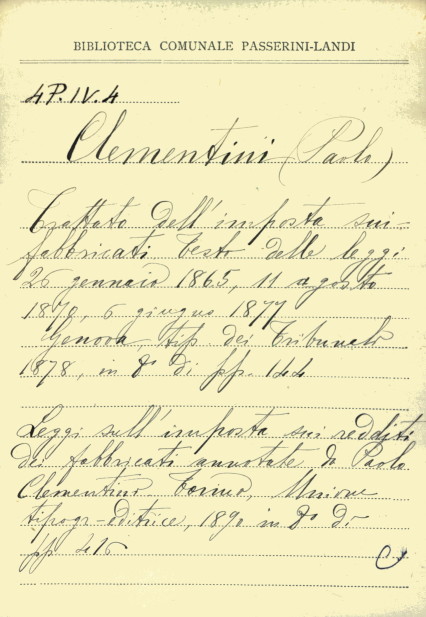 BIBLIOTECA COMUNALE PASSERINI-LANDI
4P.IV.4
Clementini (Paolo)
Trattato dell'imposta sui
fabbricati Testo delle leggi
26 gennaio 1865, 11 agosto
1870, 6 giugno 1877
Genova, tip dei Tribunali
1878, in 8° di pp. 144
Leggi sull'imposta sui redditi
dei fabbricati annotate da Paolo
Clementini. Torino, Unione
tipogr-editrice, 1890 in 8° di
pp 416